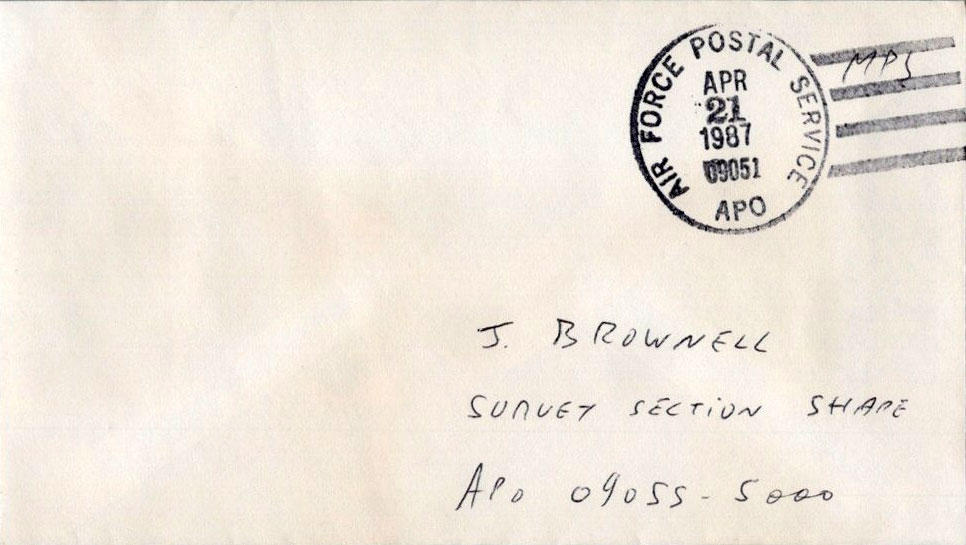 AIR FORCE POSTAL SERVICE
APR
21
1987
09051
APO
MPS
J. BROWNELL
SURVEY SECTION SHAPE
APO 09055-5000